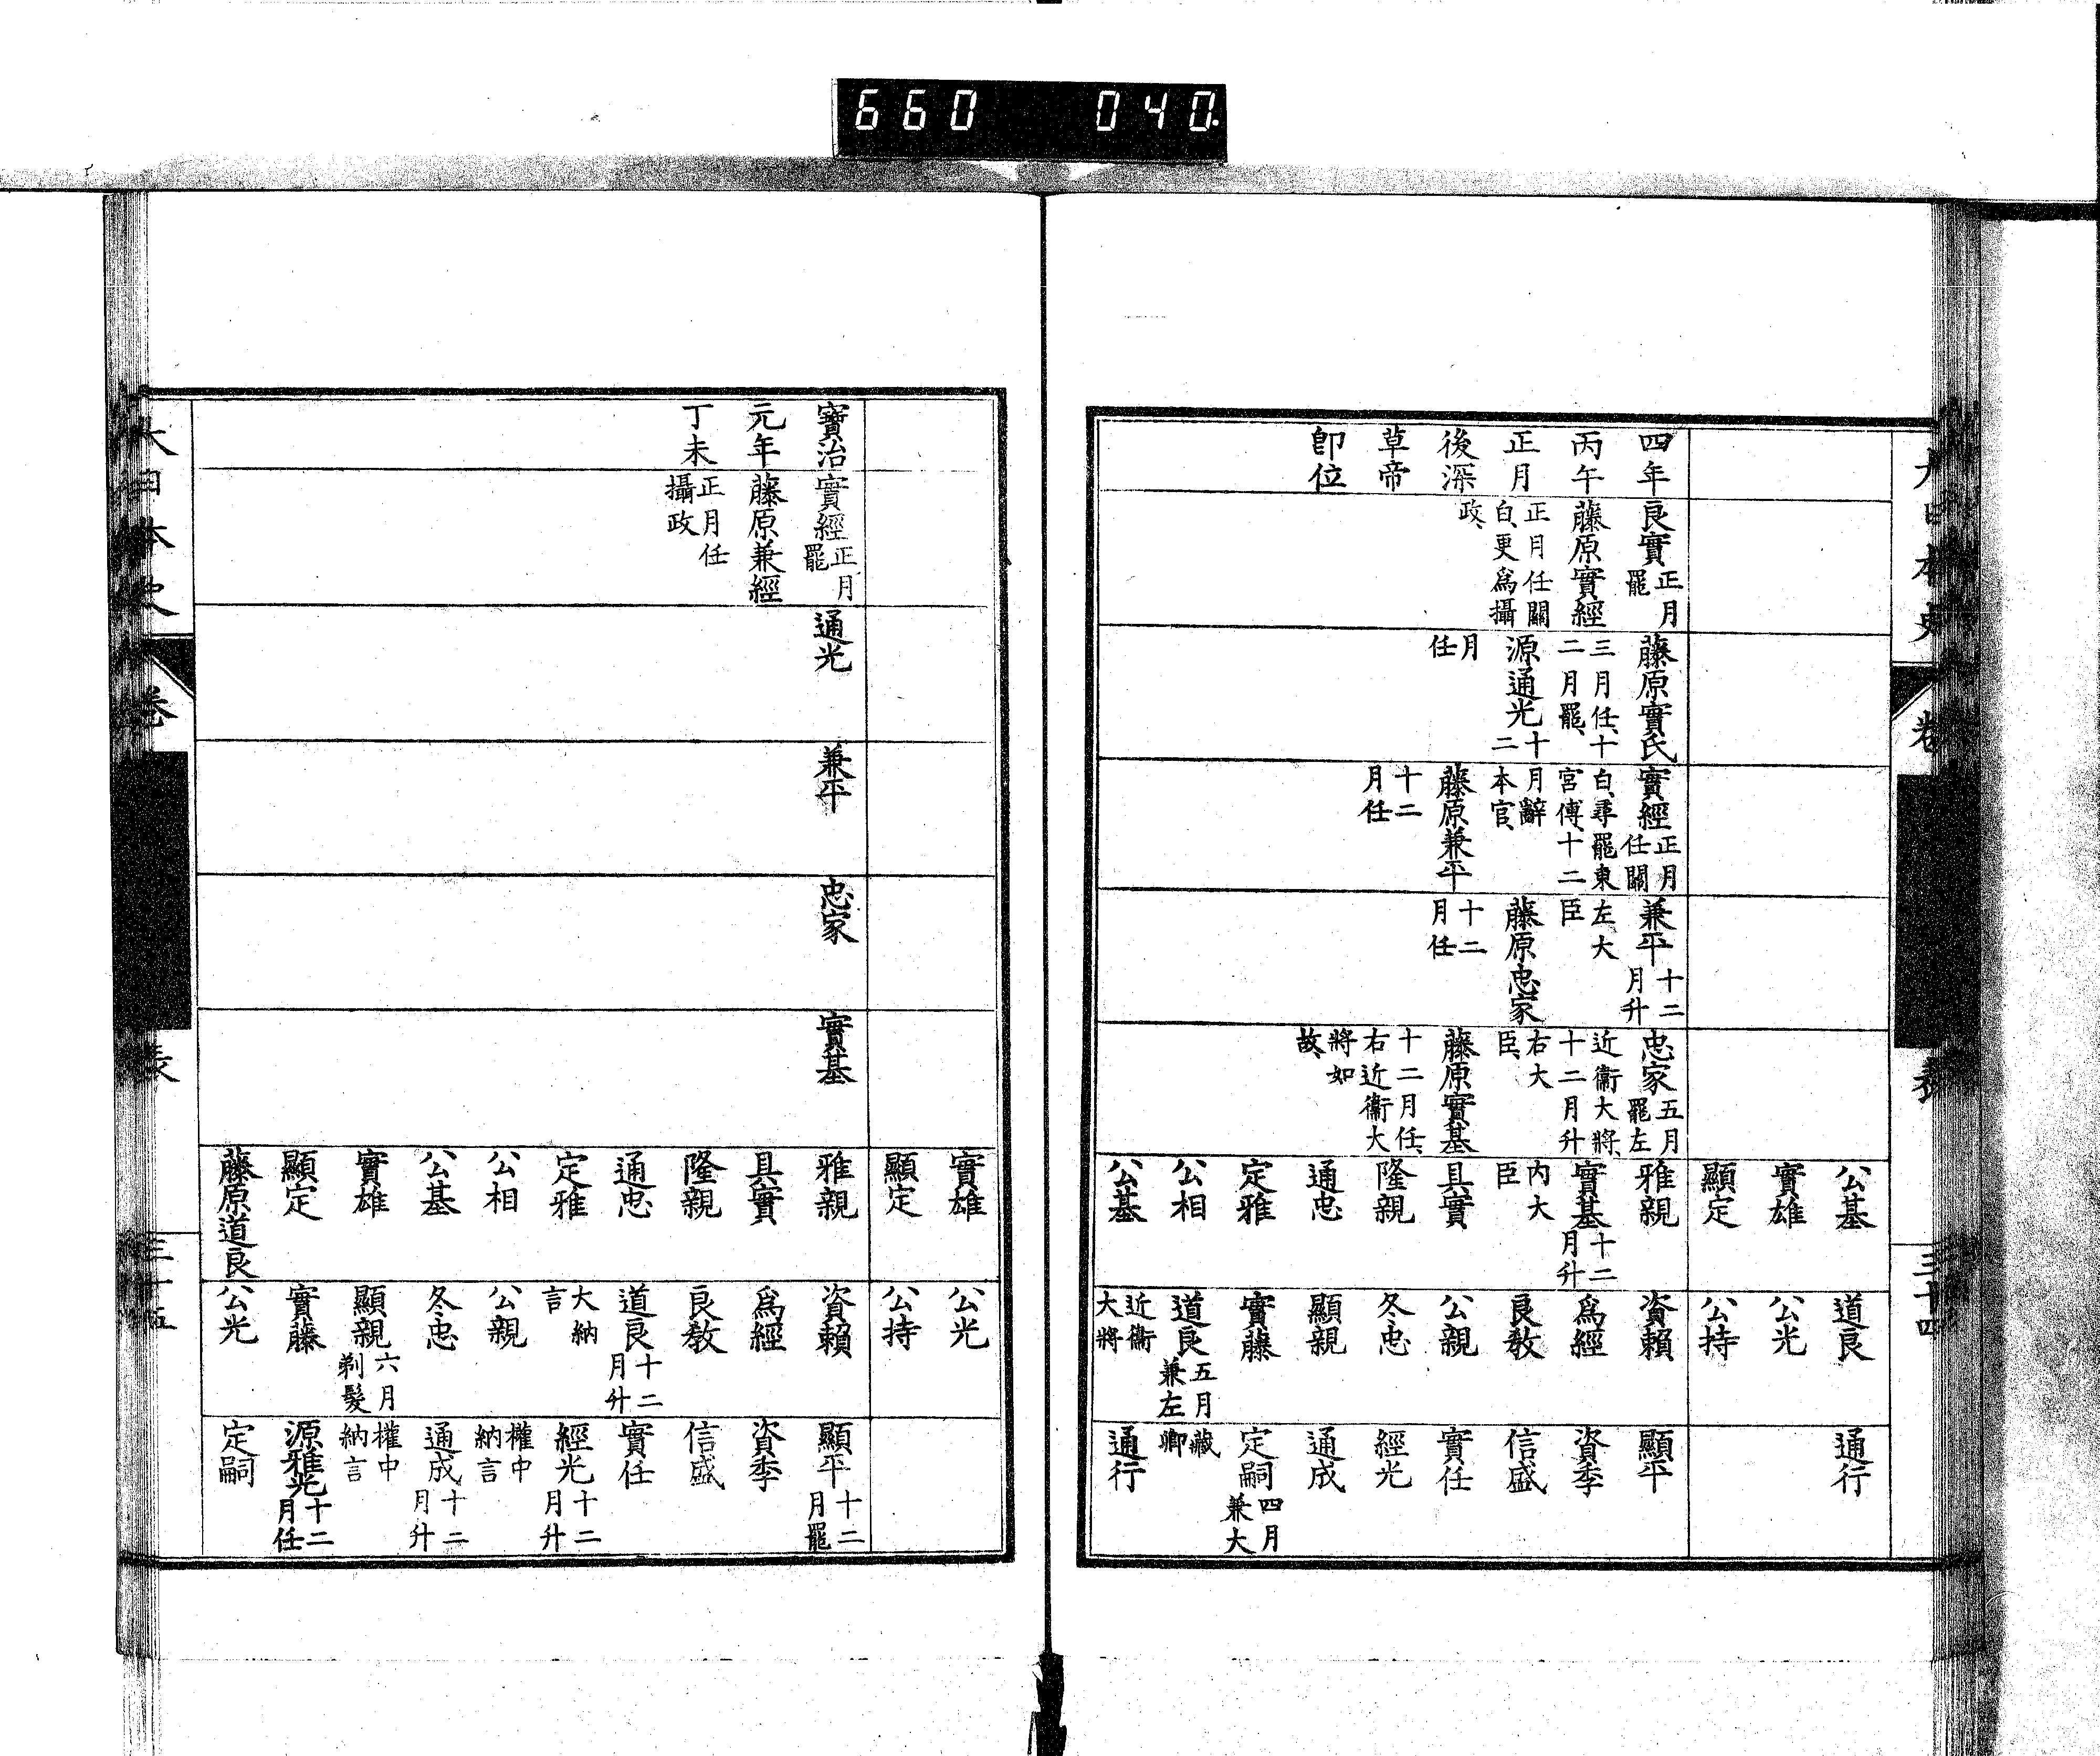 660 040
大日本史
卷
表
三十四
公基
實雄
顯定
道良
公光
公持
通行
四年
丙午
正月
後深
草帝
卽位
良實正月罷
藤原實經
正月任關白、更爲攝政、
藤原實氏
三月任、十二月罷、
源通光十二月任
實經正月任關白、尋罷東宮傅、十二月辭本官、
藤原兼平
十二月任
兼平十二月升左大臣
藤原忠家
十二月任
忠家五月罷左近衞大將、十二月升右大臣、
藤原實基
十二月任、右近衞大將如故、
雅親
實基十二月升內大臣
具實
隆親
通忠
定雅
公相
公基
資賴
爲經
良敎
公親
冬忠
顯親
實藤
道良五月兼左近衞大將
顯平
資季
信盛
實任
經光
通成
定嗣四月兼大藏卿
通行
實雄
顯定
公光
公持
寶治
元年
丁未
實經正月罷
藤原兼經
正月任攝政
通光
兼平
忠家
實基
雅親
具實
隆親
通忠
定雅
公相
公基
實雄
顯定
藤原道良
資賴
爲經
良敎
道良十二月升大納言
公親
冬忠
顯親六月剃髮
實藤
公光
顯平十二月罷
資季
信盛
實任
經光十二月升權中納言
通成十二月升權中納言
源雅光十二月任
定嗣
大日本史
卷
表
三十五